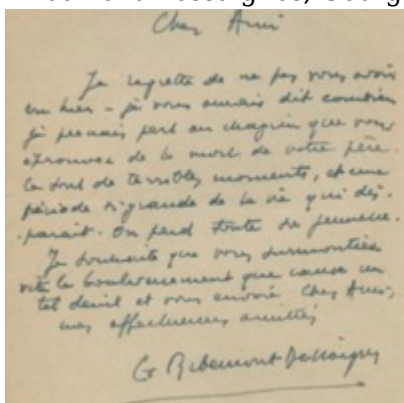 Cher Ami
Je regrette de ne pas vous avoir
vu hier - je vous aurais dit combien
je prenais part au chagrin que vous
éprouvez de la mort de votre père.
Ce sont de terribles moments, et une
période si grande de la vie qui dis-
-parait. On perd toute sa jeunesse.
Je souhaite que vous surmontiez
vite le bouleversement que cause un
tel deuil et vous envoie, Cher Ami,
mes affectueuses amitiés
G. Ribemont Dessaignes